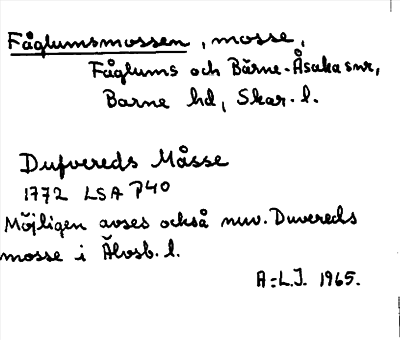 Fåglumsmossen, mosse,
Fåglums och Bärne-Åsaka snr,
Barne hd, Skar. l.
Dufvereds Måsse
1772 LSA P40
Möjligen avses också nuv. Duvereds
mosse i Älvsb. l.
A:L.J. 1965.